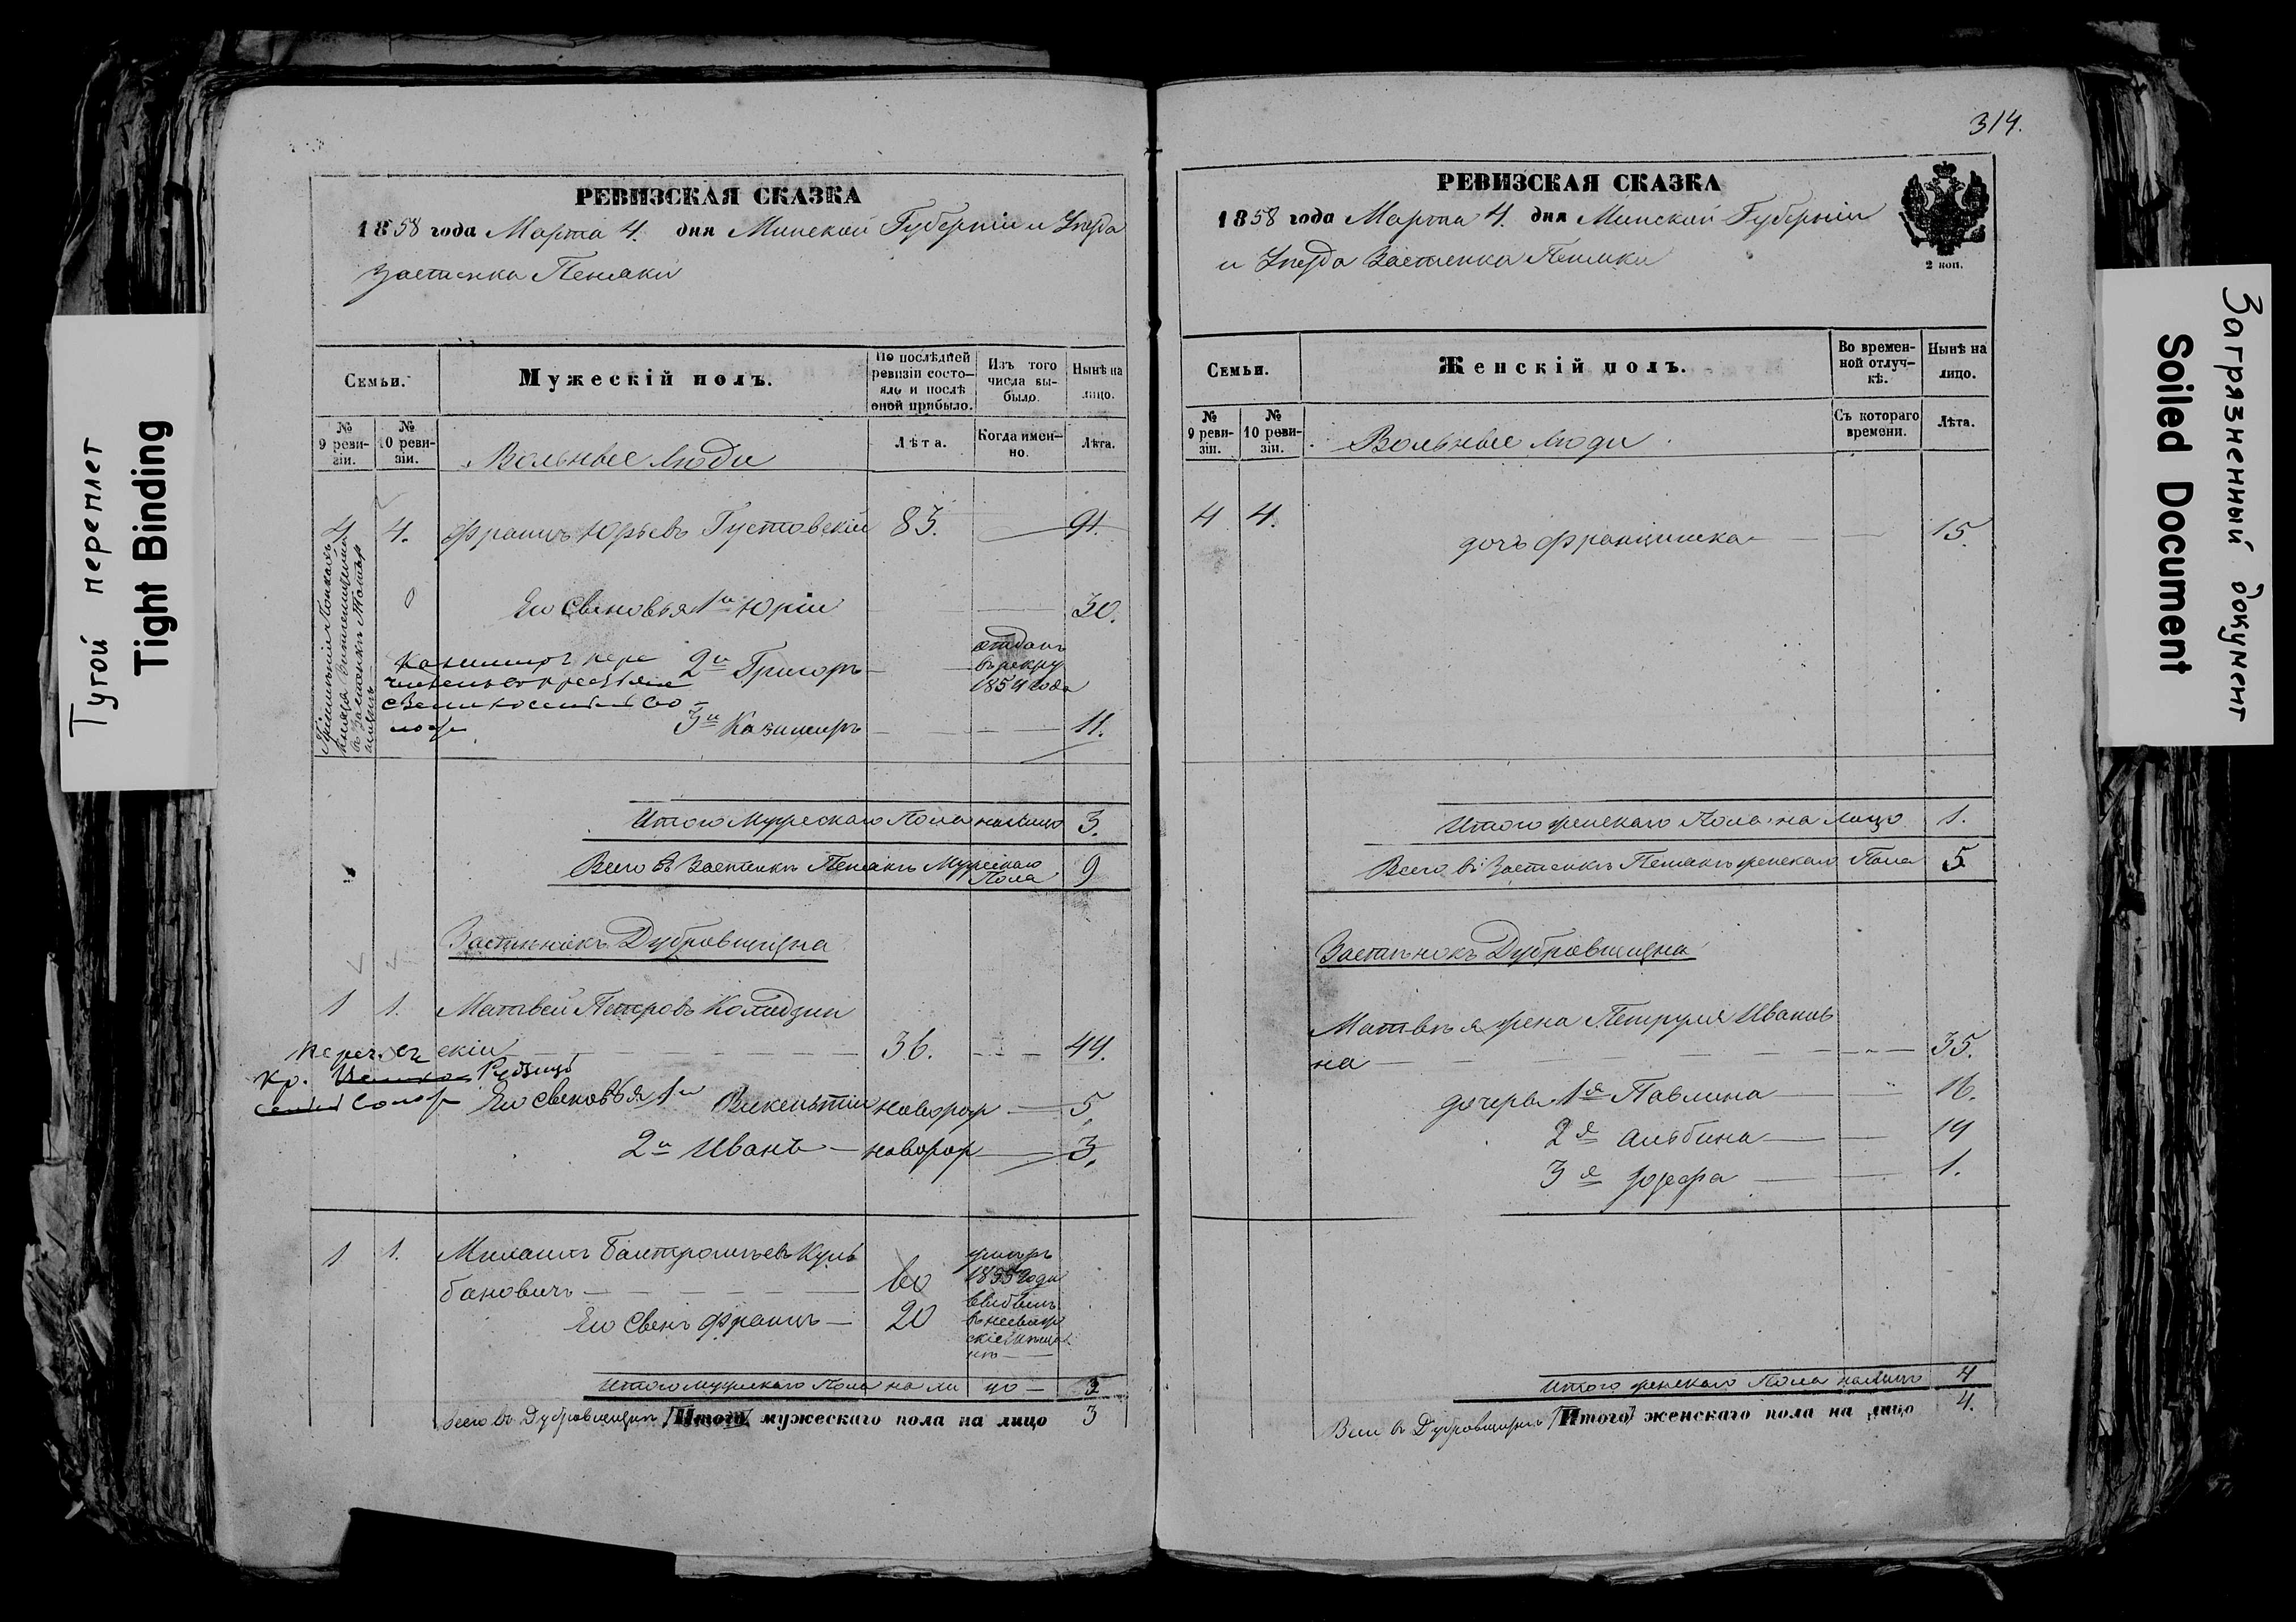 Тугой переплет
Tight Binding
РЕВИЗСКАЯ СКАЗКА
1858 года Марта 4. дня Минской Губерніи и Уѣзда
застѣнка Пеняки
Семьи.
Мужескій полъ.
По послѣдней ревизіи состояло и послѣ оной прибыло.
Изъ того числа выбыло.
Нынѣ на лицо.
№ 9 ревизіи.
№ 10 ревизіи.
Вольные люди
Лѣта.
Когда именно.
Лѣта.
4 4. Францъ Юрьевъ Густовскій 83. 91.
Его сыновья 1й Юрій 30.
2й Григоръ отданъ въ рекру 1854 года
Казимиръ пере
3й Казимиръ 11.
Итого Мужескаго Пола на лицо 3.
Всего въ Застѣнкѣ Пенякъ Мужескаго Пола 9
Застѣнокъ Дубровщизна
1 1. Матвей Петровъ Колидзин
скій 36. 44.
Его сыновья 1й Викентій новорож 5,
2й Иванъ новорож 3.
1 1. Михаилъ Балтромѣевъ Куль
бановичъ 60 умеръ 1855 года
Его сынъ Францъ 20
Итого мужескаго Пола на ли цо 3
Всего въ Дубровщизнѣ Итого мужескаго пола на лицо 3
314.
РЕВИЗСКАЯ СКАЗКА
1858 года Марта 4. дня Минской Губерніи
и Уѣзда Застѣнка Пеняки
2 коп.
Семьи.
Женскій полъ.
Во временной отлучкѣ.
Нынѣ на лицо.
№ 9 ревизіи.
№ 10 ревизіи.
Вольные люди.
Съ котораго времени.
Лѣта.
4 4. дочь Францишка 15.
Итого женскаго Пола на лицо 1.
Всего въ Застѣнкѣ Пенякъ женскаго Пола 5
Застѣнокъ Дубровщизна
Матвѣя жена Петруля Иванов
на 35.
дочери 1я Павлина 16.
2я Альбина 14
3я Юзефа 1.
Итого женскаго Пола на лицо 4
Всего въ Дубровщизнѣ Итого женскаго пола на лицо 4.
Загрязненный документ
Soiled Document